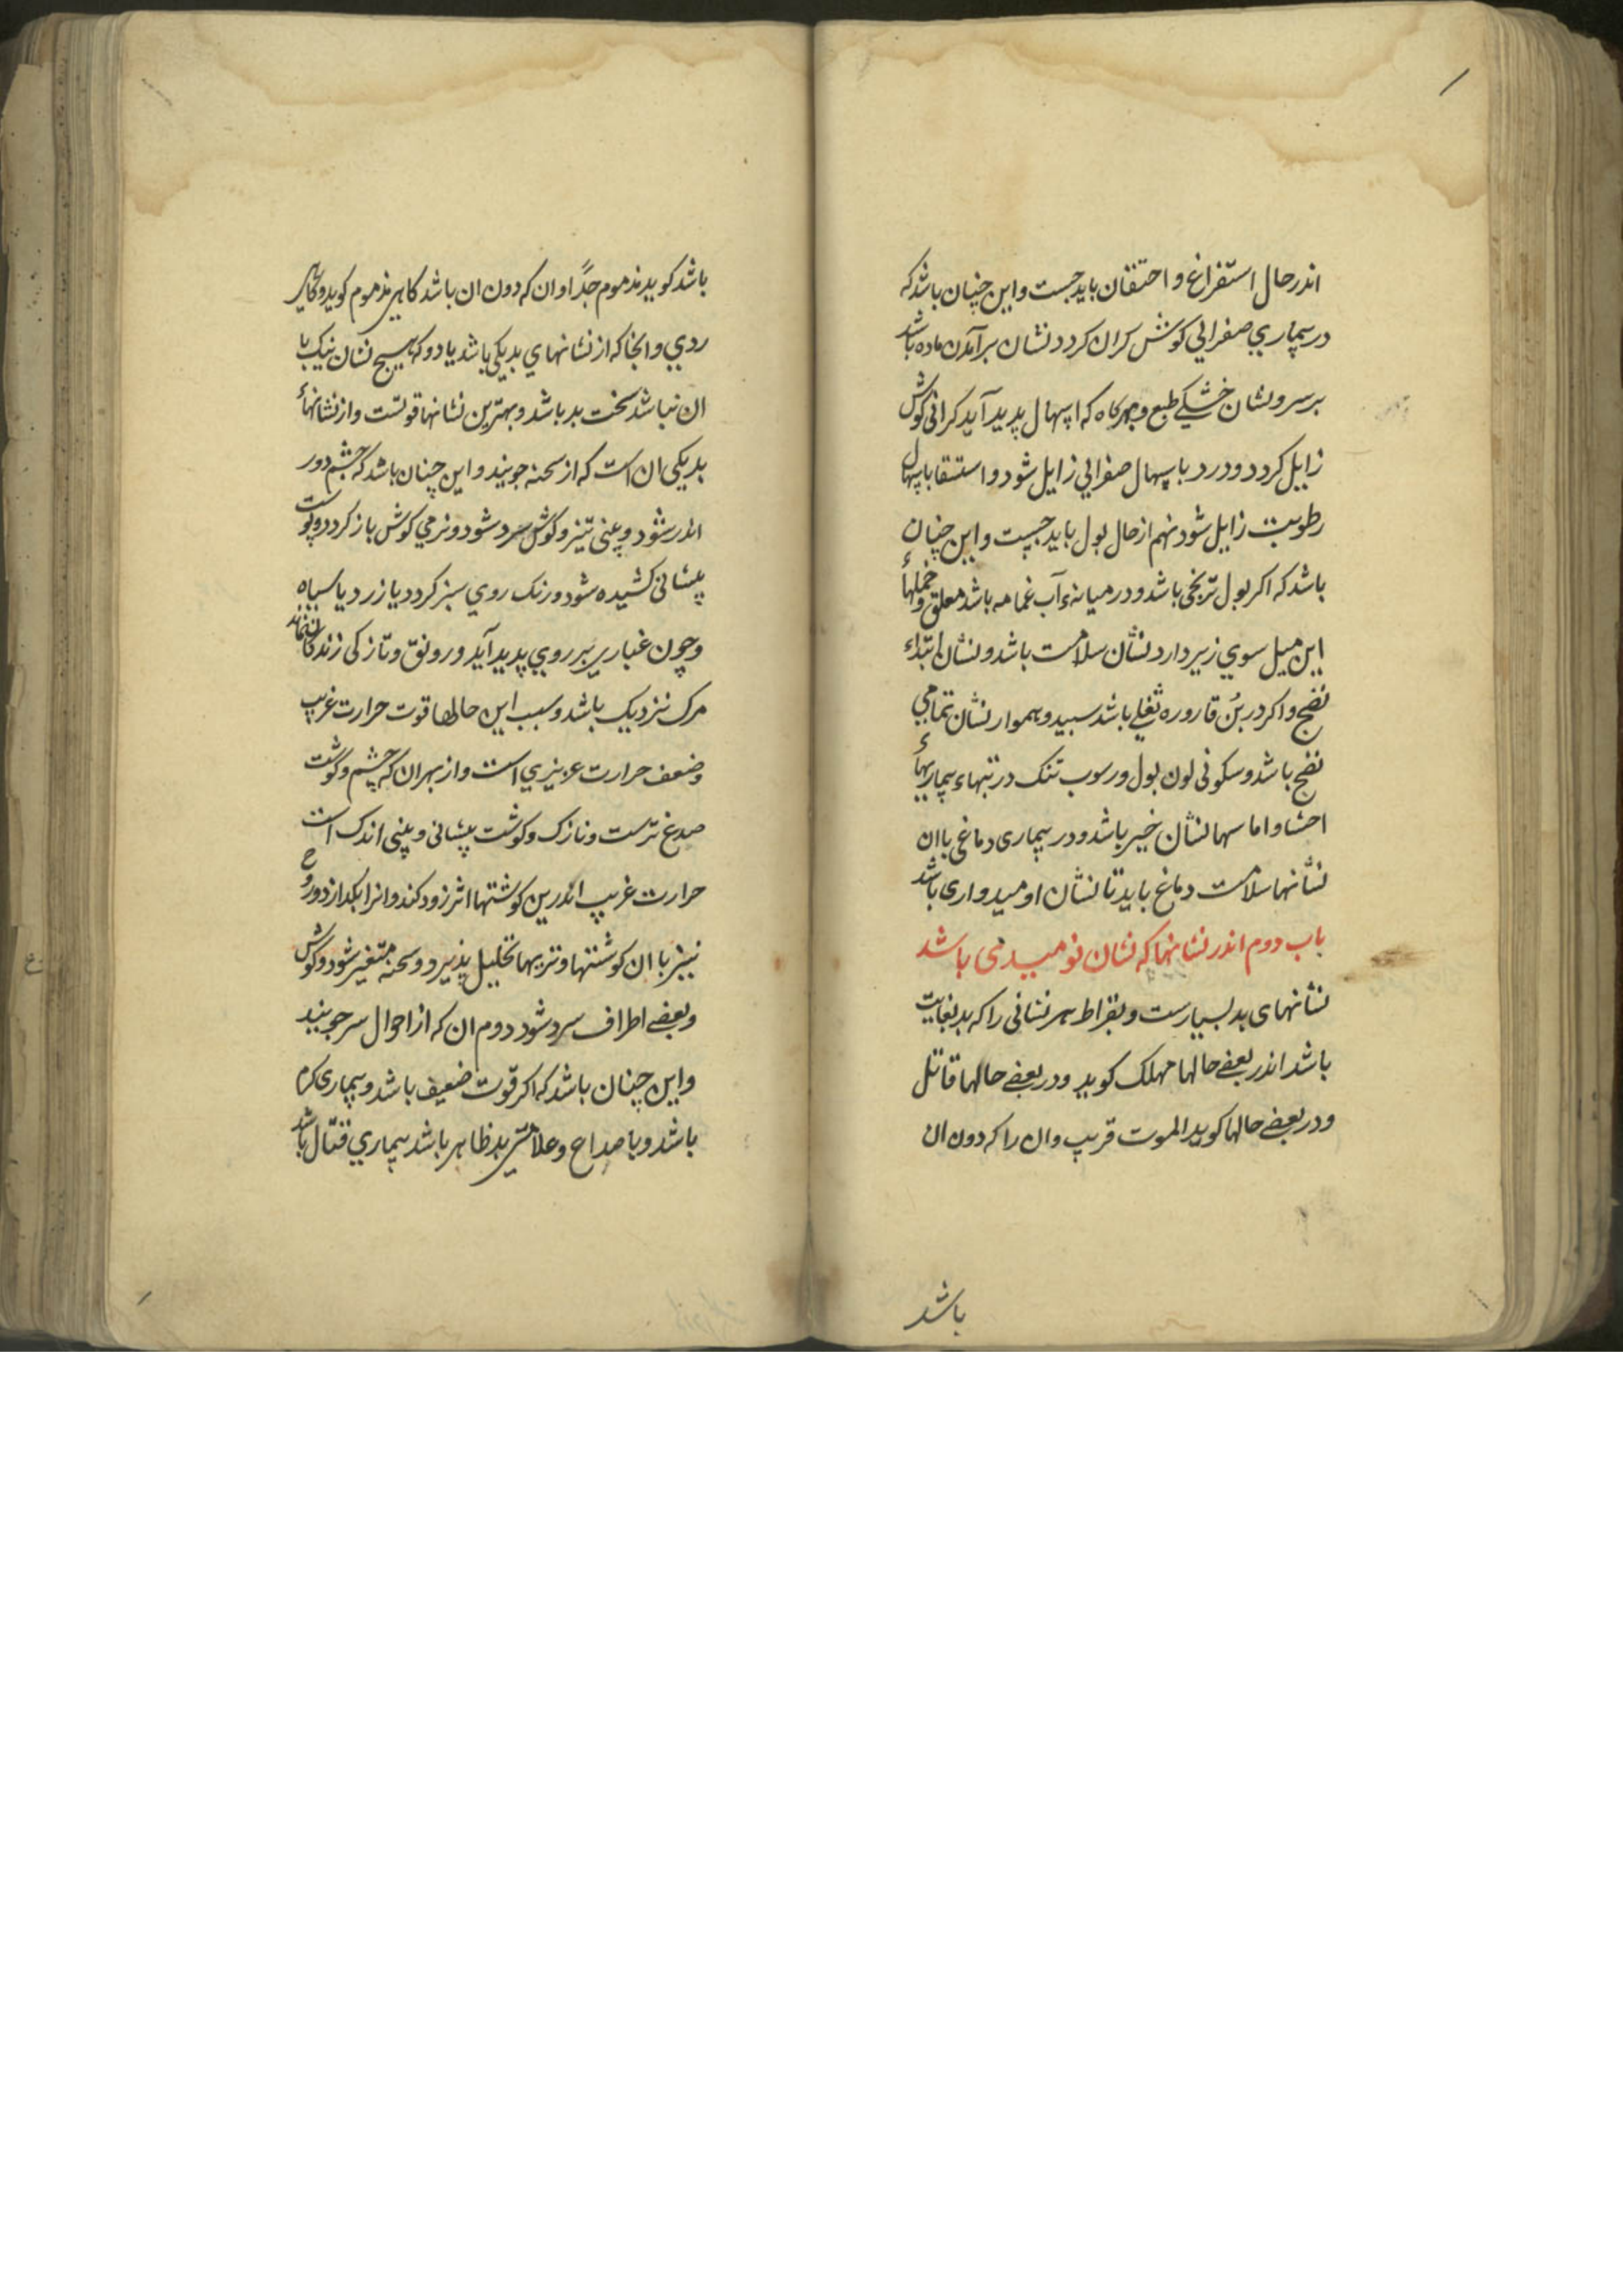 اندر حال استفراغ و احتقان باید جست و این چنان باشد که
در بیماری صفرایی کوش کران کردد نشان برآمدن ماده باشد
بر سر و نشان خشکی طبع و هرکاه که اسهال پدید آید کرانی کوش
زایل کردد و درد باسهال صفرایی زایل شود و استسقا باسهال
رطوبت زایل شود نهم از حال بول باید جست و این چنان
باشد که اکر بول ترنجی باشد و در میانهٔ آب غمامه باشد معلق و خملهاء
این میل سوی زیر دارد نشان سلامت باشد و نشان ابتداء
نضج و اکر در بُن قاروره ثفلی باشد سپید و هموار نشان تمامی
نضج باشد و سکونی لون بول و رسوب تنک در تبهاء بیماریهاء
احشا و اماسها نشان خیر باشد و در بیماری دماغی با ان
نشانها سلامت دماغ باید تا نشان اومیدواری باشد
باب دوم اندر نشانها که نشان نومیدی باشد
نشانهای بد بسیارست و بقراط هر نشانی را که بد بغایت
باشد اندر بعضی حالها مهلک کوید و در بعضی حالها قاتل
و در بعضی حالها کوید الموت قریب و ان را که دون ان
باشد
باشد کوید مذموم جدًا و ان که دون ان باشد کاهی مذموم کوید و کاهی
ردی و انجا که از نشانهای بد یکی باشد یا دو که هیچ نشان نیک با
ان نباشد سخت بد باشد و بهترین نشانها قوتست و از نشانهاء
بد یکی ان است که از سحنه جویند و این چنان باشد که چشم دور
اندر شود و بینی تیز و کوش سرد شود و نرمی کوش باز کردد و پوست
پیشانی کشیده شود و رنک روی سبز کردد یا زرد یا سیاه
و چون غباری بر روی پدید آید و رونق و تازکی زندکانی نماند
مرک نزدیک باشد و سبب این حالها قوت حرارت غریب
و ضعف حرارت عزیزی است و از بهر ان که چشم و کوشت
صدغ ترست و نازک و کوشت پیشانی و بینی اندک است
حرارت غریب اندرین کوشتها اثر زود کند و انرا بکدازد و روح
نیز با ان کوشتها و تریها تحلیل پذیرد و سحنه متغیر شود و کوش
و بعضی اطراف سرد شود دوم ان که از احوال سر جویند
و این چنان باشد که اکر قوت ضعیف باشد و بیماری کرم
باشد و با صداع و علامتی بد ظاهر باشد بیماری قتّال باشد